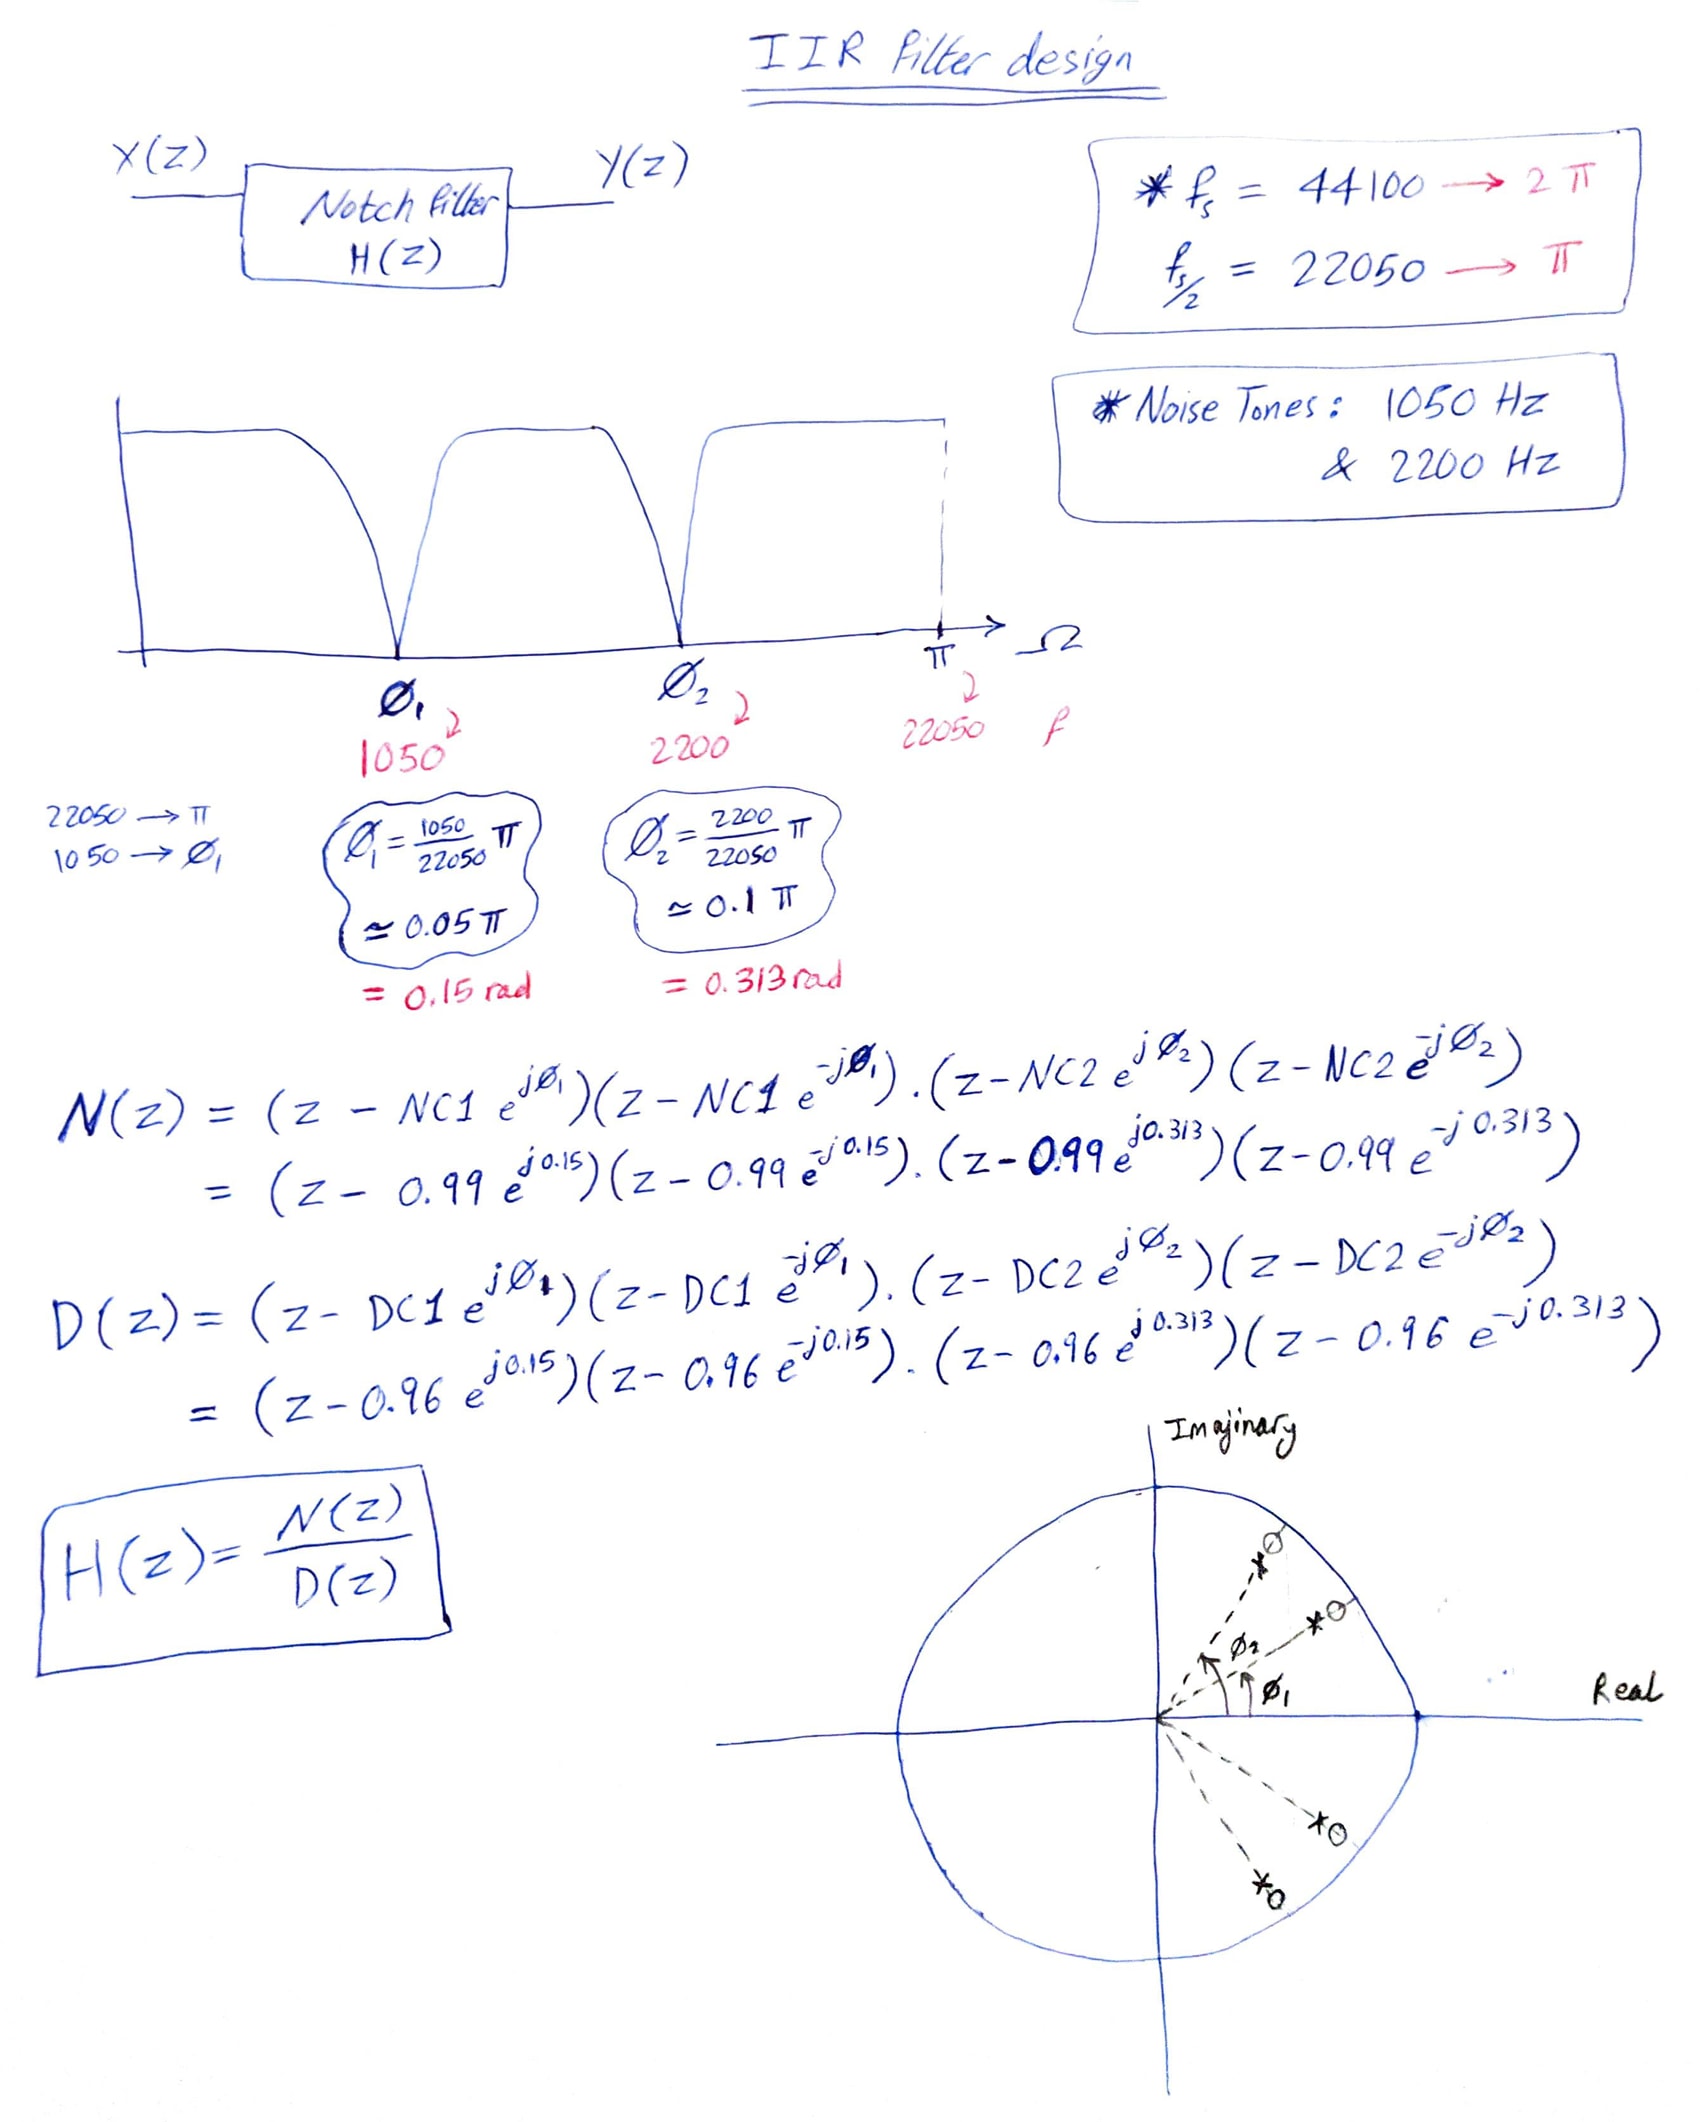 IIR filter design
X(z)
Notch filter
H(z)
Y(z)
* fs = 44100 → 2π
fs/2 = 22050 → π
* Noise Tones: 1050 Hz
& 2200 Hz
Ø₁
Ø₂
π
Ω
1050
2200
22050
f
22050 → π
1050 → Ø₁
Ø₁ = 1050/22050 π
≃ 0.05 π
= 0.15 rad
Ø₂ = 2200/22050 π
≃ 0.1 π
= 0.313 rad
N(z) = (z - NC1 e^{jØ₁})(z - NC1 e^{-jØ₁}).(z - NC2 e^{jØ₂})(z - NC2 e^{-jØ₂})
= (z - 0.99 e^{j0.15})(z - 0.99 e^{-j0.15}).(z - 0.99 e^{j0.313})(z - 0.99 e^{-j0.313})
D(z) = (z - DC1 e^{jØ₁})(z - DC1 e^{-jØ₁}).(z - DC2 e^{jØ₂})(z - DC2 e^{-jØ₂})
= (z - 0.96 e^{j0.15})(z - 0.96 e^{-j0.15}).(z - 0.96 e^{j0.313})(z - 0.96 e^{-j0.313})
H(z) = N(z)/D(z)
Imajinary
Ø₂
Ø₁
Real